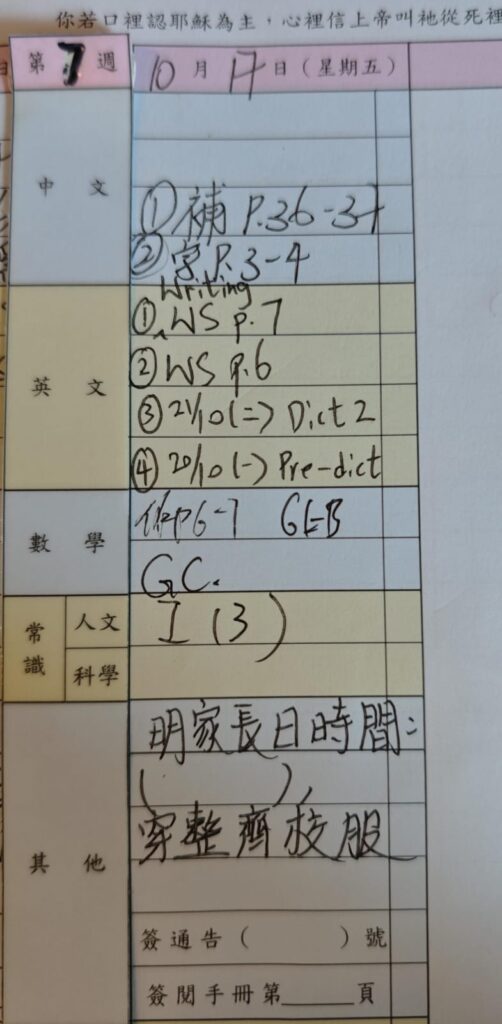 你若口裡認耶穌為主，心裡信上帝叫祂從死裡
第 7 週 10 月 17 日（星期五）
中文
① 補 P.36-37
② 字 P.3-4
英文
Writing
① ‸WS p.7
② WS p.6
③ 21/10(二) Dict 2
④ 20/10(一) Pre-dict
數學
P6-7 6上B
G.C.
常識
人文
I (3)
科學
其他
明家長日時間:
( ),
穿整齊校服
簽通告（ ）號
簽閱手冊第______頁